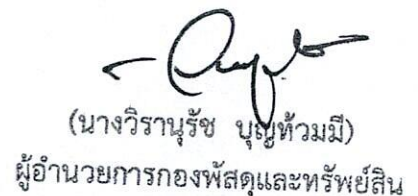 (นางวิรานุรัช บุญท้วมมี)
ผู้อำนวยการกองพัสดุและทรัพย์สิน